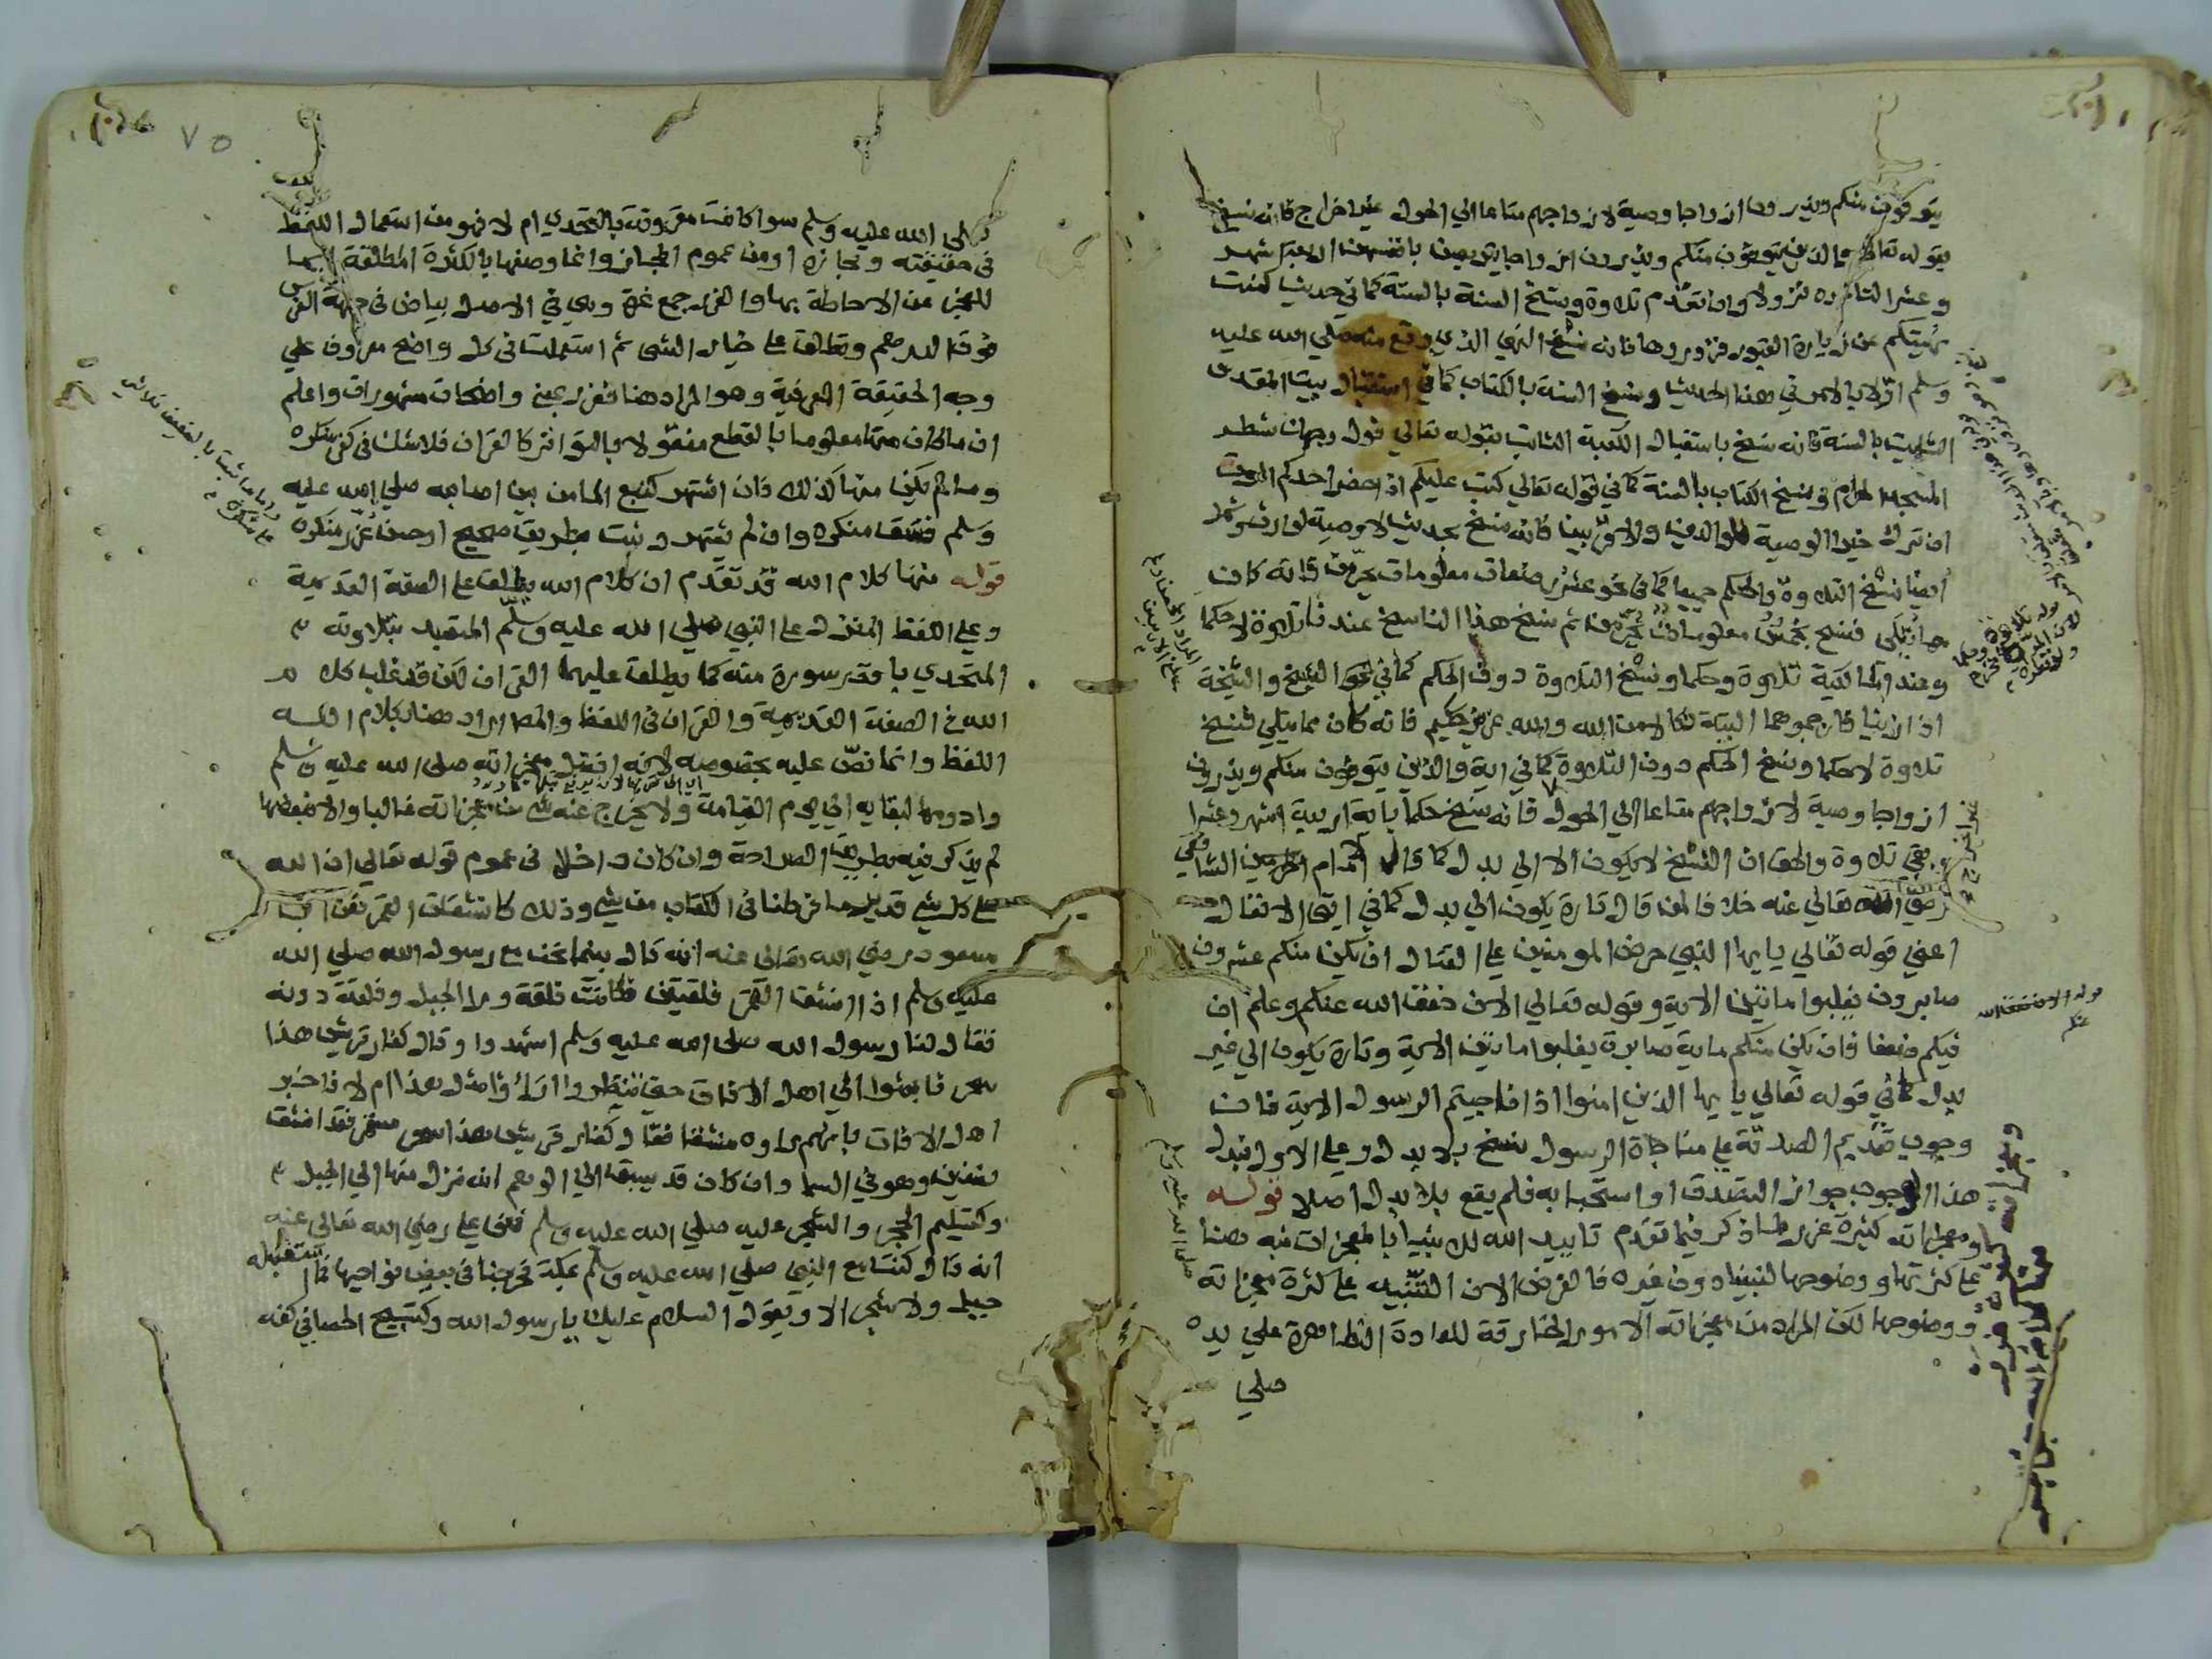 يتوفون منكم ويذرون ازواجا وصية لازواجهم متاعا الي الحول غير اخراج فانه نسخ
بقوله تعالي والذين يتوفون منكم ويذرون ازواجا يتربصن بانفسهن اربعة اشهر
وعشرا لتاخره نزولا وان تقدم تلاوة ونسخ السنة بالسنة كما في حديث كنت
نهيتكم عن زيارة القبور فزوروها فانه نسخ النهي الذي وقع منه صلي الله عليه
وسلم اولا بالامر في هذا الحديث ونسخ السنة بالكتاب كما في استقبال بيت المقدس
الثابت بالسنة فانه نسخ باستقبال الكعبة الثابت بقوله تعالي فول وجهك شطر
المسجد الحرام ونسخ الكتاب بالسنة كما في قوله تعالي كتب عليكم اذا حضر احدكم الموت
ان ترك خيرا الوصية للوالدين والاقربين فانه نسخ بحديث لا وصية لوارث وشمل
ايضا نسخ التلاوة والحكم جميعا كما في نحو عشر رضعات معلومات يحرمن فانه كان
مما يتلى فنسخ بخمس معلومات يحرمن ثم نسخ هذا الناسخ عندنا تلاوة لا حكما
وعند المالكية تلاوة وحكما ونسخ التلاوة دون الحكم كما في نحو الشيخ والشيخة
اذا زنيا فارجموهما البتة نكالا من الله والله عزيز حكيم فانه كان مما يتلي فنسخ
تلاوة لا حكما ونسخ الحكم دون التلاوة كما في اية والذين يتوفون منكم ويذرون
ازواجا وصية لازواجهم متاعا الي الحول فانه نسخ حكما باية اربعة اشهر وعشرا
وبقي تلاوة والحق ان النسخ لا يكون الا الي بدل كما قال الامام الشافعي
رضي الله تعالي عنه خلافا لمن قال تارة يكون الي بدل كما في ايتي الانفال
اعني قوله تعالي يا يها النبي حرض المومنين علي القتال ان يكن منكم عشرون
صابرون يغلبوا مائتين الاية وقوله تعالي الان خفف الله عنكم وعلم ان
فيكم ضعفا فان يكن منكم ماية صابرة يغلبوا مائتين الاية وتارة يكون الي غير
بدل كما في قوله تعالي يا يها الذين امنوا اذا ناجيتم الرسول الاية فان
وجوب تقديم الصدقة علي مناجاة الرسول نسخ بلا بدل وعلي الاول فبدل
هذا الوجوب جواز التصدق او استحبابه فلم يقع بلا بدل اصلا قوله
ومعجزاته كثيرة غرر لما ذكر فيما تقدم تاييد الله لانبيايه بالمعجزات نبه هنا
علي كثرتها ووضوحها لنبينا دون غيره فالغرض الان التنبيه علي كثرة معجزاته
ووضوحها لكن المراد من معجزاته الامور الخارقة للعادة الظاهرة علي يده
صلي
قوله الان خفف الله
عنكم
٧٥
صلى الله عليه وسلم سوا كانت مقرونة بالتحدي ام لا فهو من استعمال اللفظ
في حقيقته ومجازه او من عموم المجاز وانما وصفها بالكثرة المطلقة
للعجز عن الاحاطة بها والغرر جمع غرة وهي في الاصل بياض في جبهة الفرس
فوق الدرهم وتطلق علي خيار الشي ثم استعملت في كل واضح معروف علي
وجه الحقيقة العرفية وهو المراد هنا فغرر بمعني واضحات مشهورات واعلم
ان ما كان منها معلوما بالقطع منقولا بالتواتر كالقران فلا شك في كفر منكره
وما لم يكن منها كذلك فان اشتهر كنبع الما من بين اصابعه صلي الله عليه
وسلم فسق منكره وان لم يشتهر وثبت بطريق صحيح او حسن عزر منكره
قوله منها كلام الله قد تقدم ان كلام الله يطلق علي الصفة القديمة
وعلي اللفظ المنزل علي النبي صلي الله عليه وسلم المتعبد بتلاوته
المتحدي باقصر سورة منه كما يطلق عليهما القران لكن قد غلب كلام
الله في الصفة القديمة والقران في اللفظ والمراد هنا بكلام الله
اللفظ وانما نص عليه بخصوصه لانه افضل معجزاته صلي الله عليه وسلم
وادومها لبقايه الي يوم القيامة ولا يخرج عنه شي من معجزاته غالبا والا فبعضها
لم يذكر فيه بطريق الصراحة وان كان داخلا في عموم قوله تعالي ان الله
علي كل شي قدير ما فرطنا في الكتاب من شي وذلك كانشقاق القمر فعن ابن
مسعود رضي الله تعالي عنه انه قال بينما نحن مع رسول الله صلي الله
عليه وسلم اذ انشق القمر فلقتين فكانت فلقة ورا الجبل وفلقة دونه
فقال لنا رسول الله صلي الله عليه وسلم اشهدوا وقال كفار قريش هذا
سحر فابعثوا الي اهل الافاق حتي تنظروا اراوا مثل هذا ام لا فاخبر
اهل الافاق بانهم راوه منشقا فقال كفار قريش هذا سحر مستمر فقد انشق
نصفين وهو في السما وان كان قد يسبق الي الوهم انه نزل منها الي الجبل
وكتسليم الحجر والشجر عليه صلي الله عليه وسلم فعن علي رضي الله تعالي عنه
انه قال كنت مع النبي صلي الله عليه وسلم بمكة فخرجنا في بعض نواحيها فما استقبله
جبل ولا شجر الا ويقول السلام عليك يا رسول الله وكتسبيح الحصا في كفه